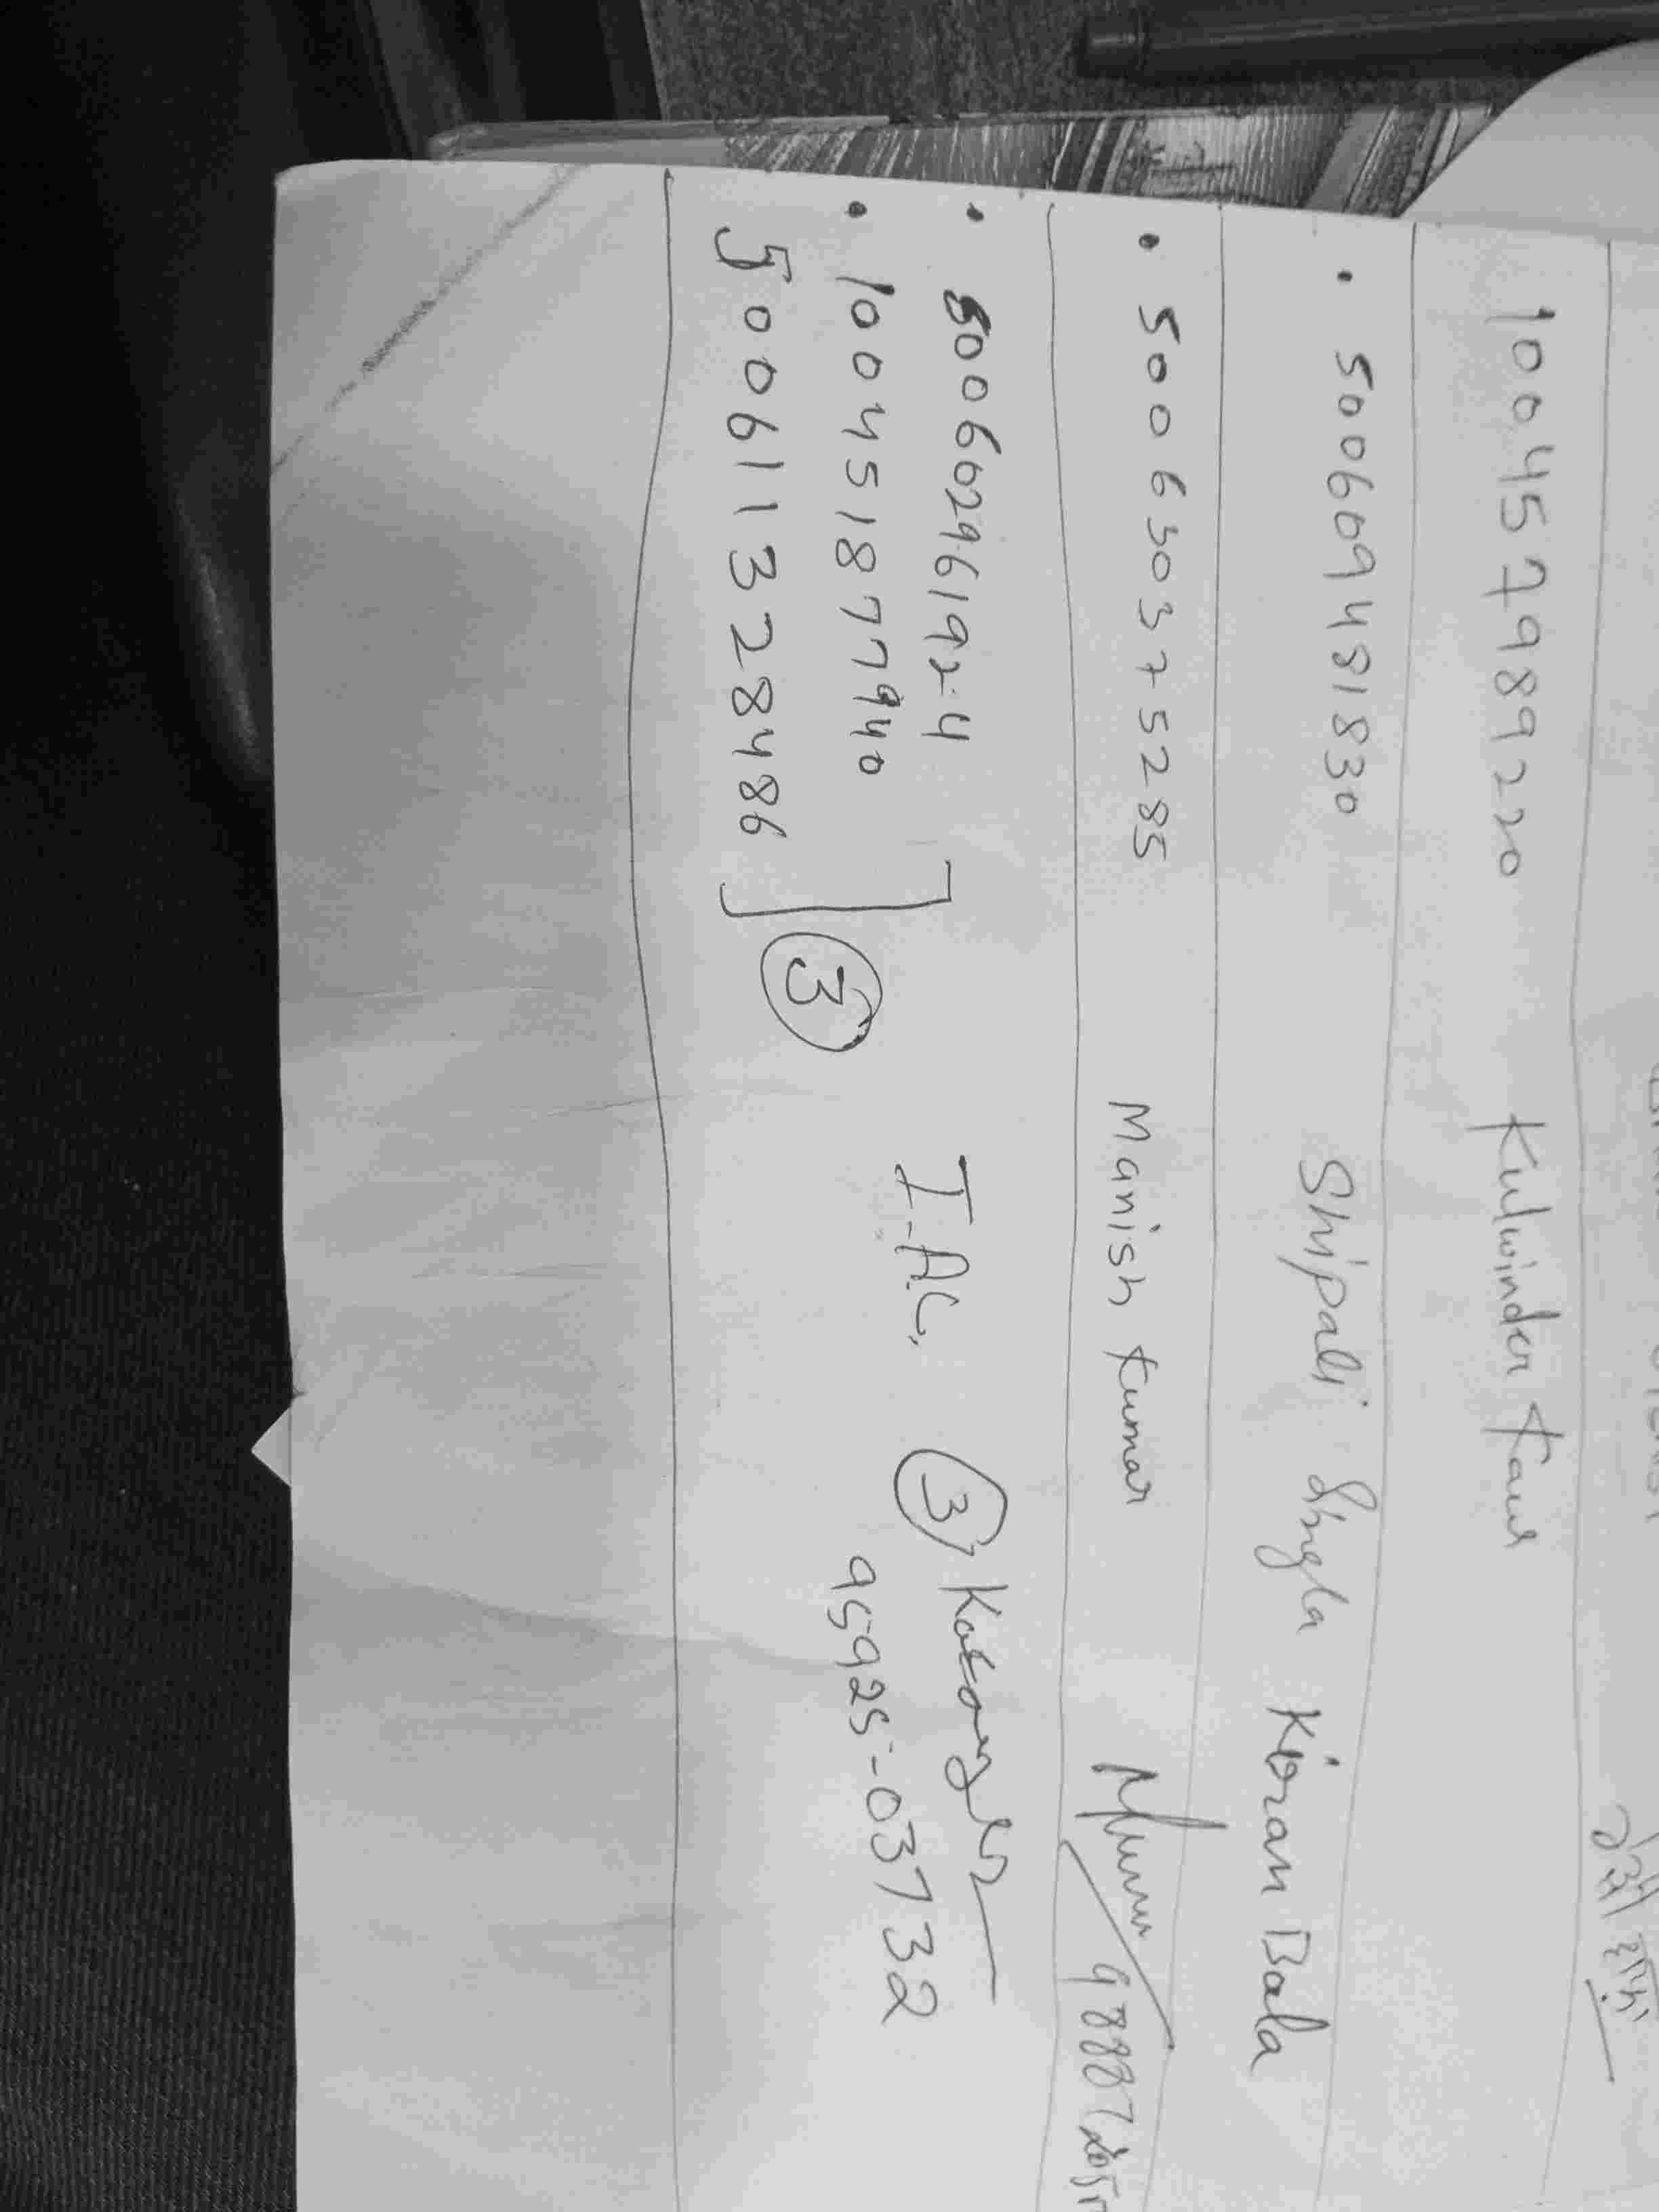 100457989220 Kulwinder Kaur
• 500609481830 Shipali Singla Kiran Bala
• 500630375285 Manish Kumar
• 500602961924
• 100451877940
500611328486 ] ③ I.A.C. ③
95925-03732